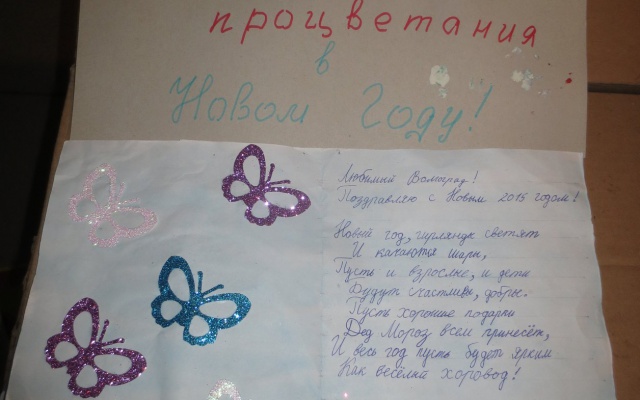 процветания
в
Новом Году!
Любимый Волгоград!
Поздравляю с Новым 2015 годом!
Новый год, гирлянды светят
И качаются шары,
Пусть и взрослые, и дети
Будут счастливы, добры.
Пусть хорошие подарки
Дед Мороз всем принесёт,
И весь год пусть будет ярким
Как весёлый хоровод!